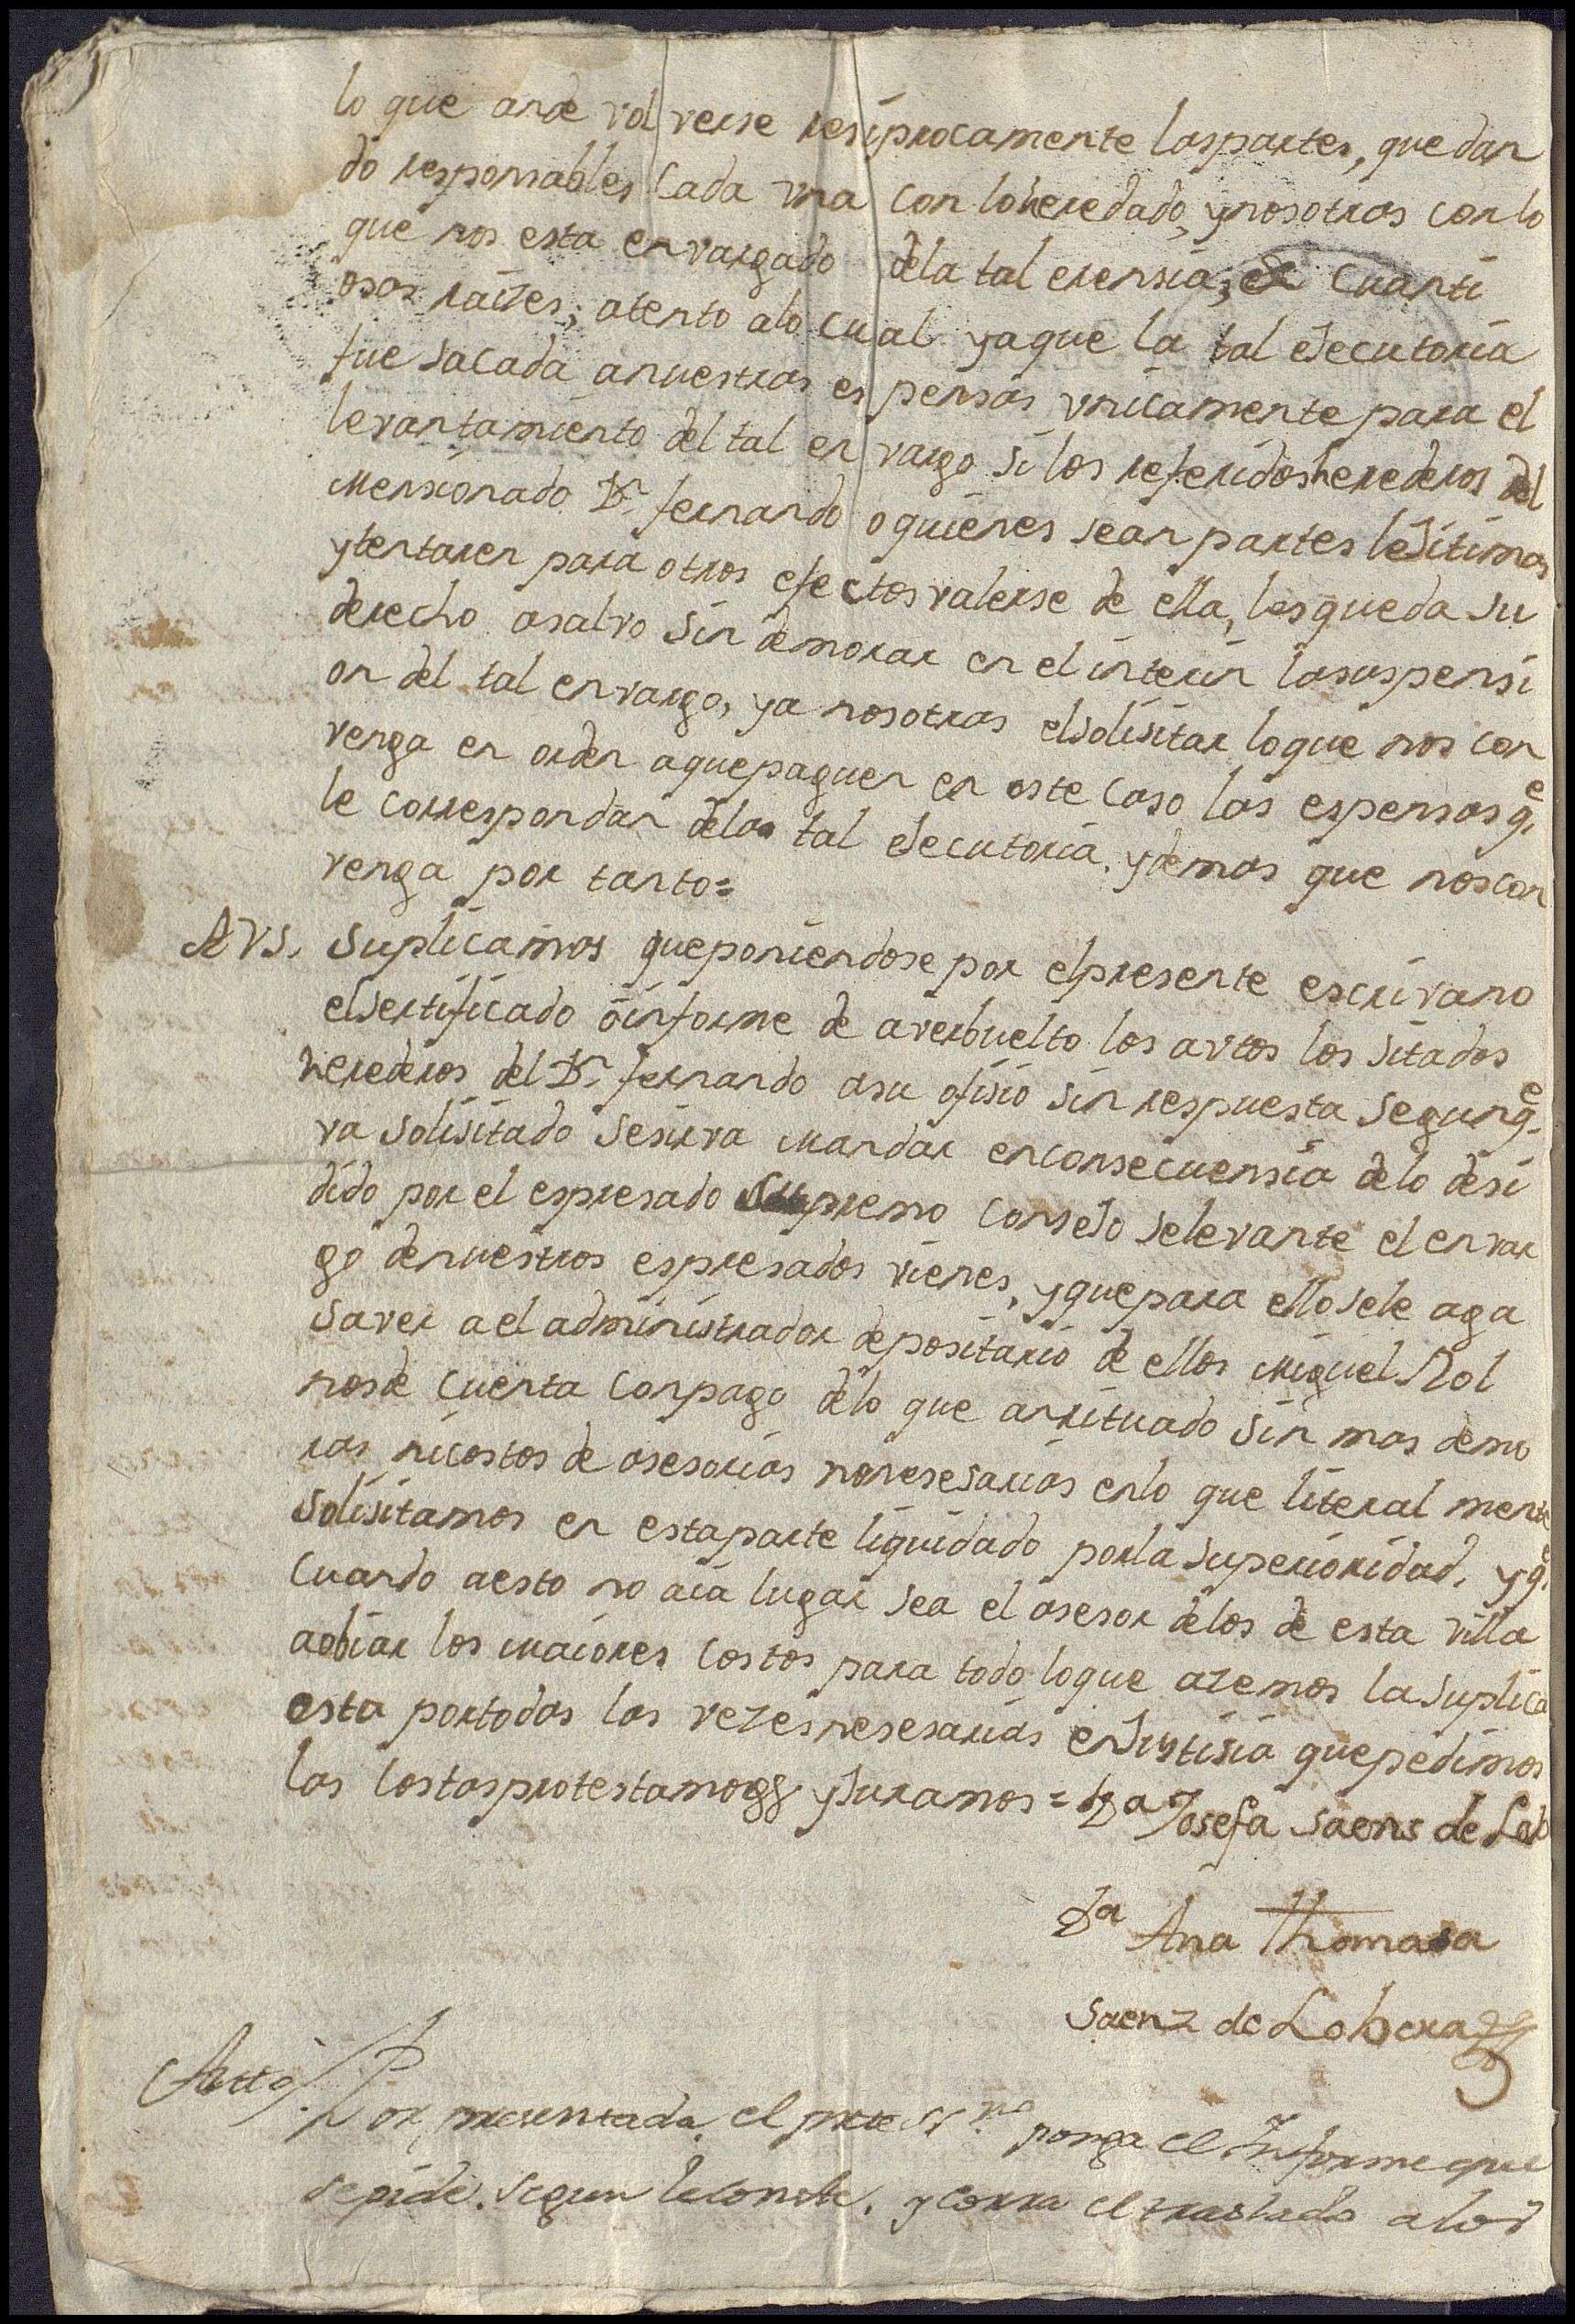 lo que ande vol verse resiprocamente las partes, quedan
do responsables Cada vna con lo heredado, y nosotras con lo
que nos esta envargado de la tal erensia, & cuanti
osos raises, atento a lo cual y a que la tal eJecutoria
fue sacada a nuestras espensas vnicamente para el
levantamiento del tal envargo si los referidos herederos del
Mensionado Dn. fernando o quienes sean partes leJitimas
yntentaren para otros efectos valerse de ella, les queda su
derecho a salvo sin demorar en el interin la suspensi
on del tal envargo, y a nosotras el solisitar lo que nos con
venga en orden a que paguen en este caso las espensas qe.
le correspondan de la tal eJecutoria y demas que nos con
venga por tanto=
A VS. Suplicamos que poniendose por el presente escrivano
el sertificado o informe de aver buelto los autos los sitados
herederos del Dn. fernando a su ofisio sin respuesta segun qe.
va solisitado se sirva mandar en consecuensia de lo desi
dido por el espresado Supremo ConseJo se levante el envar
go de nuestros espresados vienes, y que para ello se le aga
saver a el administrador depositario de ellos Miguel Rol
nos de cuenta con pago de lo que an rituado sin mas demo
ras ni costos de asesorias no nesesarias en lo que literal mente
solisitamos en esta parte liquidado por la superioridad, y qe.
cuando a esto no aia lugar sea el asesor de los de esta villa
a obiar los maiores costos para todo lo que azemos la suplica
esta por todas las vezes nesesarias en Justisia que pedimos
las costas protestamos & y Juramos = Da Josefa Saens de Lob
Da Ana Thomasa
Saenz de Lobera
Auto
Por presentada, el pnte Ssno ponga el Informe que
se pide. segun le conste. y corra el traslado a los